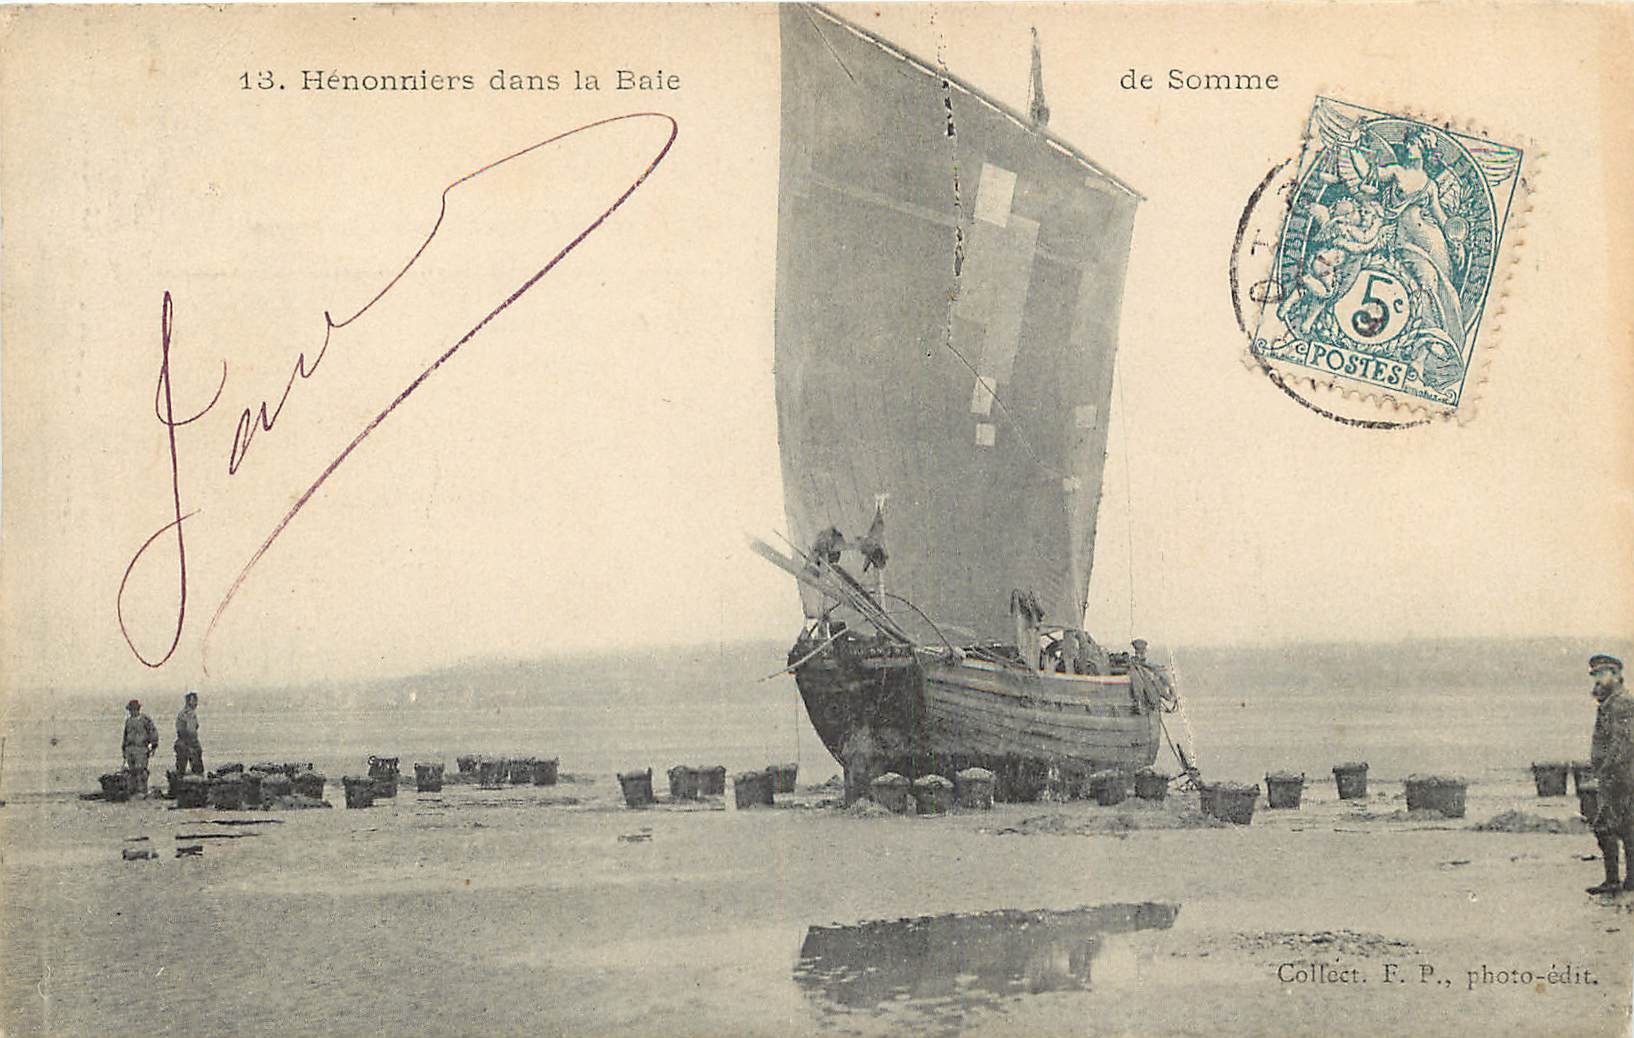 13. Hénonniers dans la Baie de Somme
RÉPUBLIQUE FRANÇAISE
5c
POSTES
Collect. F. P., photo-édit.